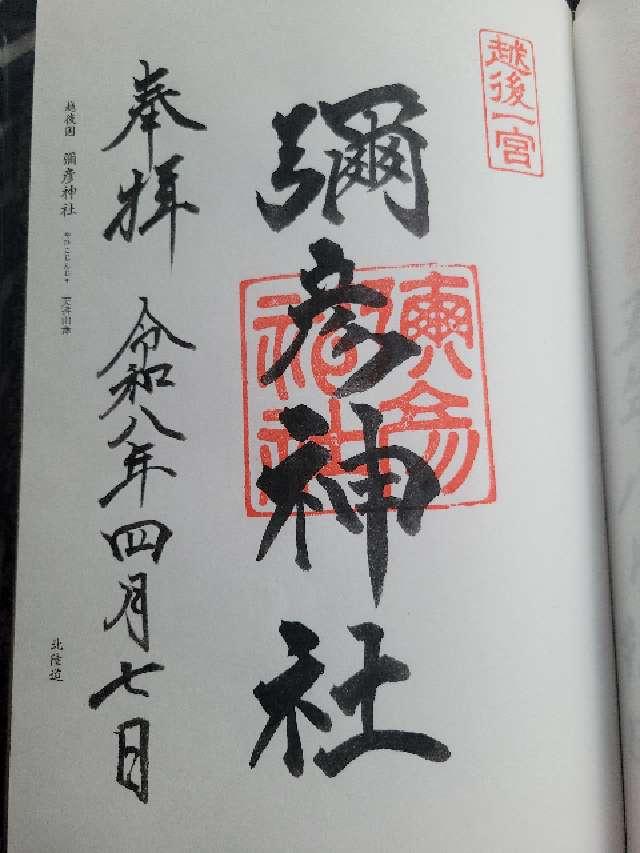 越後一宮
彌彦神社
彌彦神社
奉拝 令和八年四月七日
越後国 彌彦神社
北陸道